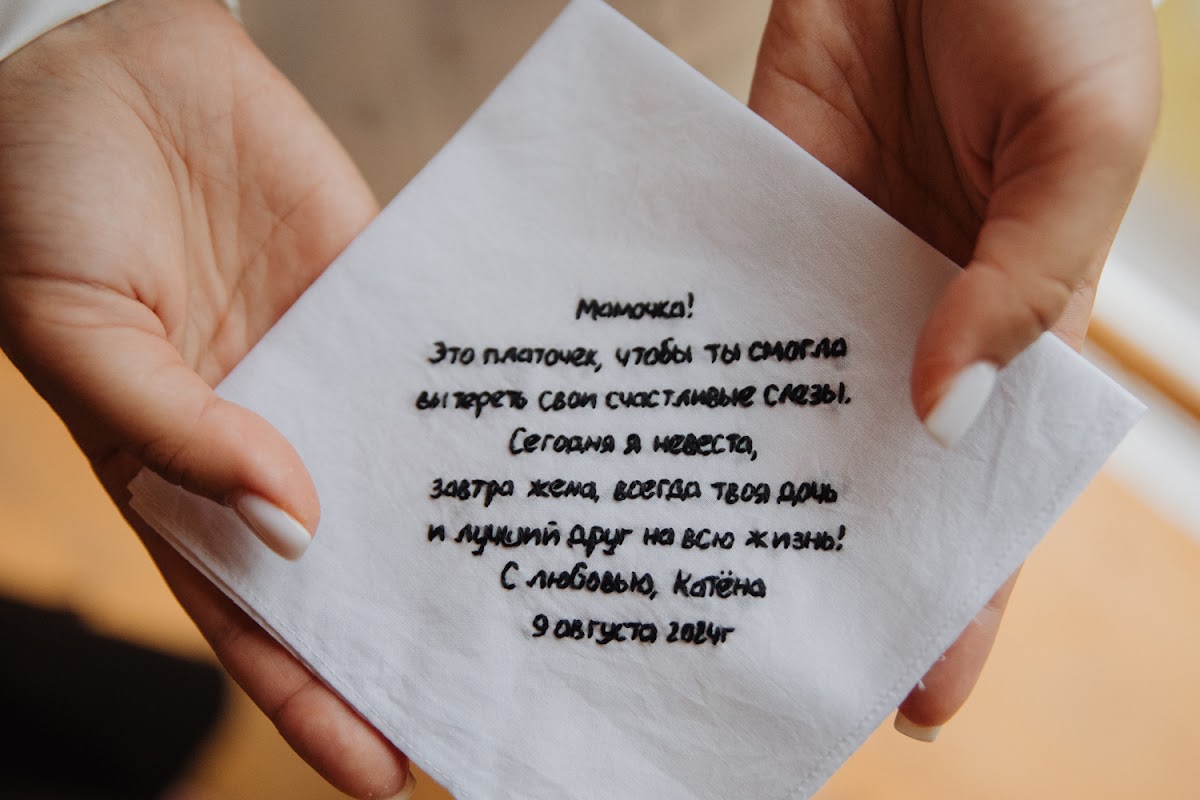 Мамочка!
Это платочек, чтобы ты смогла
вытереть свои счастливые слезы.
Сегодня я невеста,
завтра жена, всегда твоя дочь
и лучший друг на всю жизнь!
С любовью, Катёна
9 августа 2024г